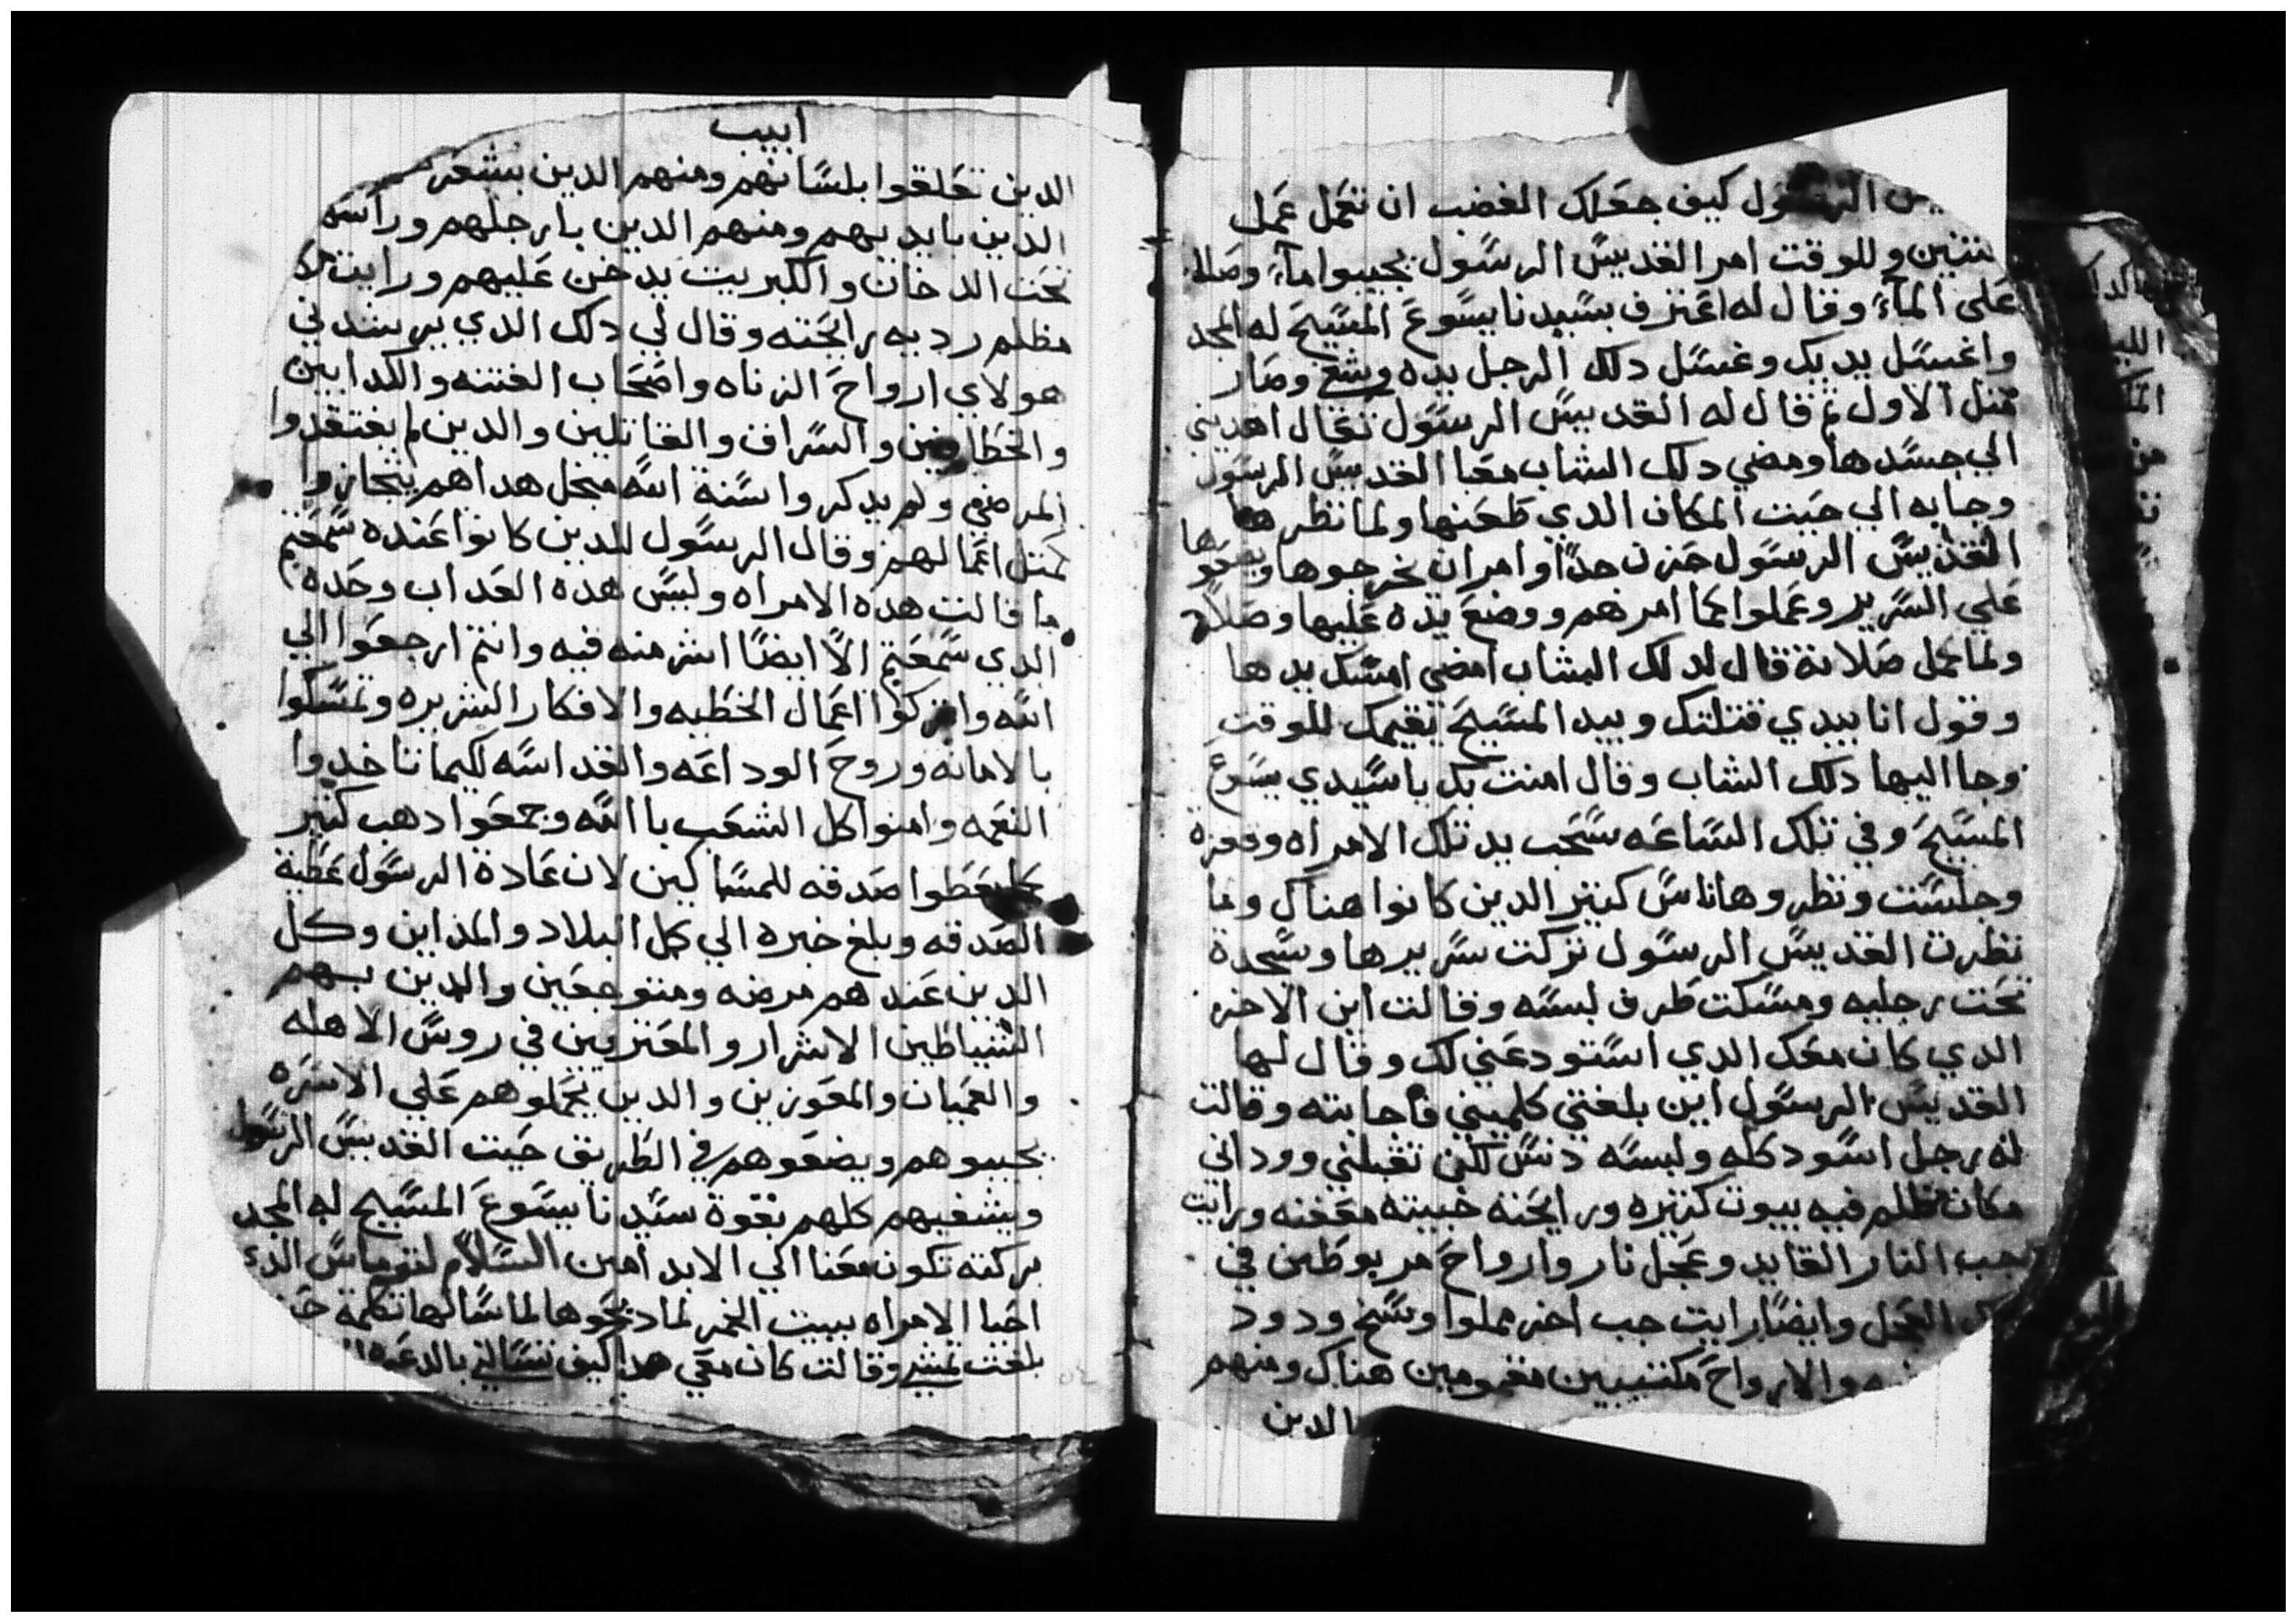 الرسول كيف جعلك الغضب ان تعمل عمل
وللوقت امر القديس الرسول يجيبوا مآء وصلا
على المآء وقال له اعترف بسيدنا يسوع المسيح له المجد
واغسل يديك وغسل دلك الرجل يده وشفي وصار
مثل الاول ثم قال له القديس الرسول تعال اهديني
الي جسدها ومضي دلك الشاب معا القديس الرسول
وجابه الي حيت المكان الدي طعنها ولما نظرها
القديس الرسول حزن جدًا وامر ان يخرجوها
علي السرير وعملوا كما امرهم ووضع يده عليها وصلا
ولما كمل صلاتة قال لدلك الشاب امضي امسك يدها
وقول انا بيدي قتلتك وبيد المسيح يقيمك للوقت
وجا اليها دلك الشاب وقال امنت بك ياسيدي يسوع
المسيح وفي تلك الساعه سحب يد تلك الامراه وقفزة
وجلست ونظروها ناس كتير الدين كانوا هناك ولما
نظرت القديس الرسول تركت سريرها وسجدة
تحت رجليه ومسكت طرف لبسه وقالت اين الاخر
الدي كان معك الدي استودعني لك وقال لها
القديس الرسول اين بلغتي كلميني فاجابته وقالت
له رجل اسود كله ولبسه دنس لكن تقبلني ووداني
مكان مظلم فيه بيوت كتيره ورايحته خبيته معفنه ورايت
جب النار القايد وعجل نار وارواح مربوطين في
العجل وايضًا رايت جب اخر مملوا وسخ ودود
والارواح مكتيبين مغمومين هناك ومنهم
الدين
ابيب
الدين تعلقوا بلسانهم ومنهم الدين بشعر
الدين بايديهم ومنهم الدين بارجلهم وراسهم
تحت الدخان والكبريت يدخن عليهم ورايت
مظلم رديه رايحته وقال لي دلك الدي يرشدني
هولاي ارواح الزناه واصحاب الفتنه والكدابين
والخطافين والسراق والقاتلين والدين لم يفتقدوا
المرضي ولم يدكروا سنة الله مبخل هداهم يتجازوا
كمتل اعمالهم وقال الرسول للدين كانوا عنده سمعتم
ما قالت هده الامراه وليس هده العداب وحده
الدي سمعتم الا ايضًا اشر منه فيه وانتم ارجعوا الي
الله واتركوا اعمال الخطيه والافكار الشريره وتمسكوا
بالامانه وروح الوداعه والقداسه لكيما تاخدوا
النعمه وامنوا كل الشعب بالله وجمعوا دهب كتير
يعطوا صدقه للمساكين لان عادة الرسول عطية
الصدقه وبلغ خبره الي كل البلاد والمداين وكل
الدين عندهم مرضه ومتوجعين والدين بهم
الشياطين الاشرار والمعتريين في روس الاهله
والعميان والمعوزين والدين يحملوهم علي الاسره
يجيبوهم ويضعوهم في الطريق حيت القديس الرسول
ويشفيهم كلهم بقوة سيدنا يسوع المسيح له المجد
بركته تكون معنا الي الابد امين السلام لتوماس الدي
احيا الامراه ببيت الخمر لما دبحوها لما سالها تكلمة
بلغت تمشي وقالت كان معي هدا كيف تسالني